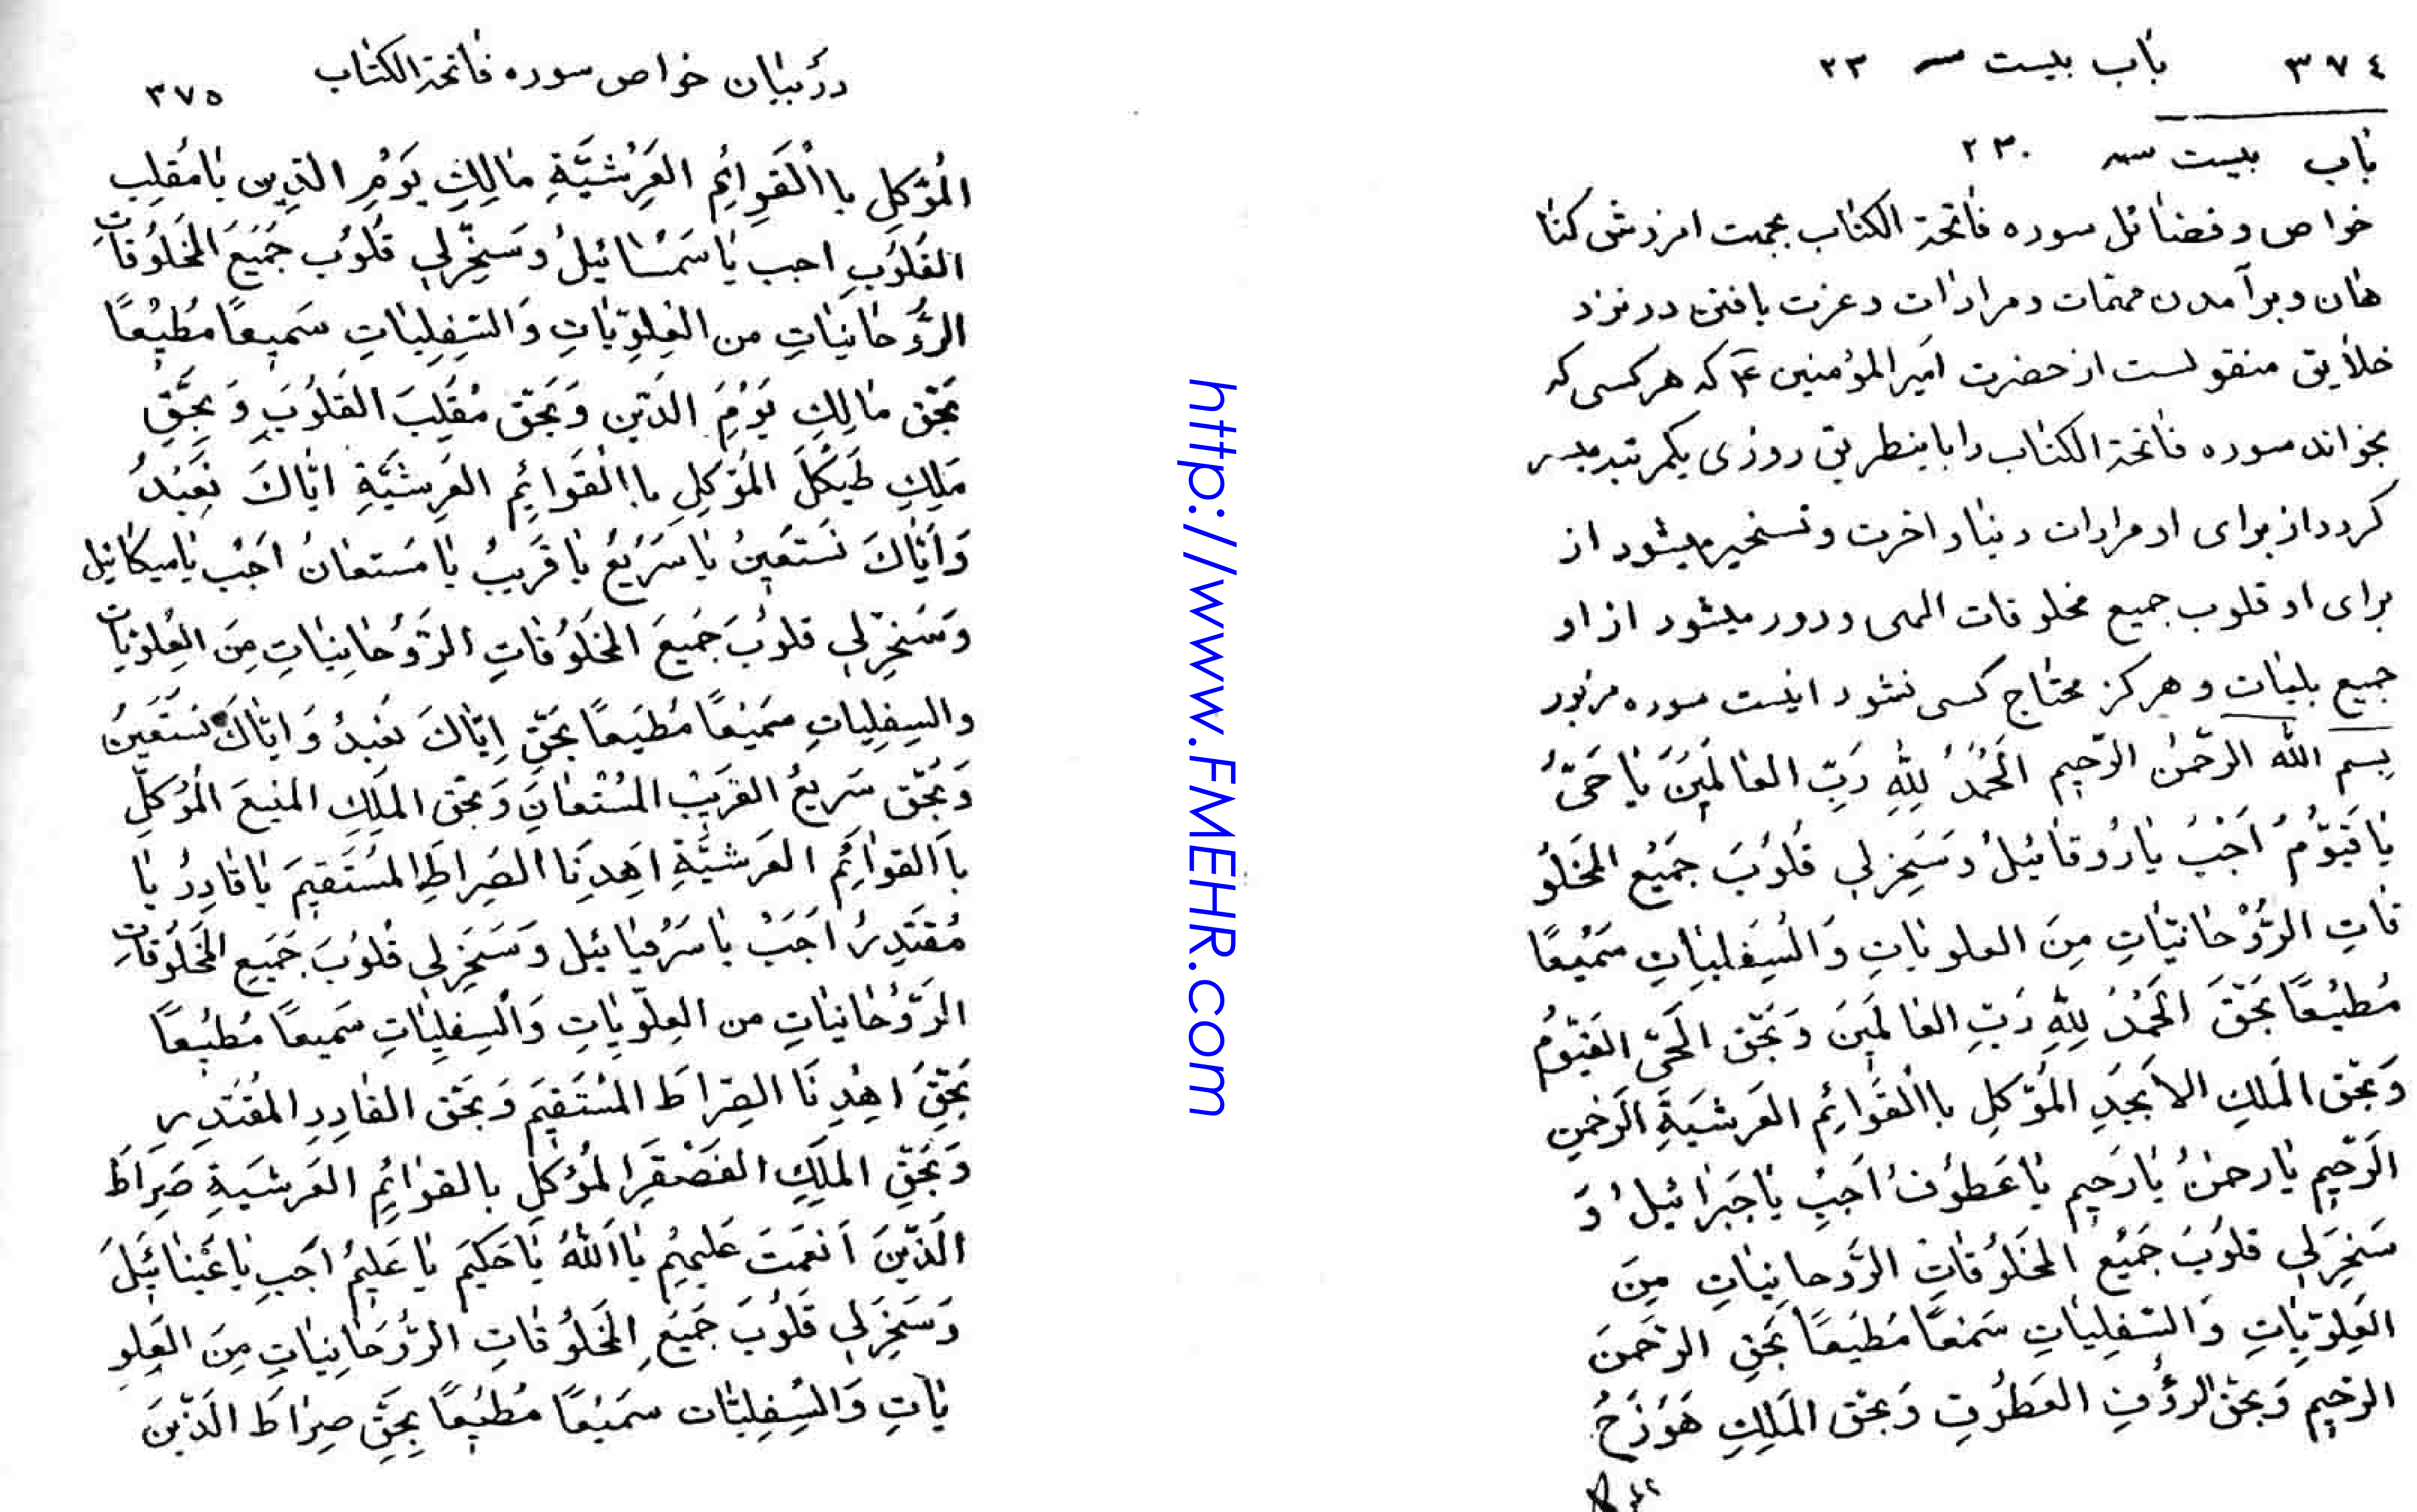 ٣٧٤ باب بیست سه ٢٣
باب بیست سه ٢٣٠
خواص و فضائل سوره فاتحة الکتاب بجهت امرزش کنا
هان و برآمدن مهمّات و مرادات و عزت یافتن در نزد
خلایق منقولست از حضرت امیرالمؤمنین ع که هر کسی که
بخواند سوره فاتحة الکتاب را باینطریق روزی یکمرتبه میسر
کردد از برای او مرادات دنیا و اخرت و تسخیر میشود از
برای او قلوب جمیع مخلوقات الهی و دور میشود از او
جمیع بلیات و هرکز محتاج کسی نشود اینست سوره مزبور
بسم الله الرّحمن الرّحیم الحَمدُ لِلّهِ رَبِّ العالَمینَ یا حَیُّ
یا قَیّوُمُ اَجِبْ یا رُوقائیلُ وَ سَخِّرلی قُلُوبَ جَمیُع المَخلُو
قاتِ الرُّوْحانیّاتِ مِنَ العلویاتِ وَ السِفلیاتِ سَمیعًا
مُطیُعًا بَحَقِّ الحَمْدُ لِلّهِ رَبِّ العالَمینَ وَ بَحّق الحَیّ القَیّوُم
وَ بحَّق المَلکِ الاَبجَدِ المُوَّکلِ باالقَوائِم العَرشیَةِ الرَحمنِ
الرَحّیم یا رحمنُ یا رَحیم یا عَطوُفُ اَجِبِ یا جَبرائیلُ وَ
سَخِرلی قلوُبَ جَمیُع المَخلوُقاتِ الرَّوحانِیاتِ مِنَ
العَلِوّیاتِ وَ السّفلِیاتِ سَمعًا مَطیَعًا بَحَقِ الرّحمنَ
الرحّیِم وَ بحَق الرؤُفِ العَطُوفِ وَ بحَق المَلِکِ هَوَزَحُ
در بیان خواص سوره فاتحة الکتاب ٣٧٥
المُوَّکلِ باالْقَوِائِم العَرشیَّةِ مالِكِ یَوْمِ الدّین یا مُقَلِب
القَلوُبِ اجب یا سَمْسائیلُ وَ سَخِّرلی قُلُوُب جَمَیعَ المَخلوُقاتَ
الرُّوحانِیاتِ من العِلوِّیاتِ وَ السِّفِلِیاتِ سَمیعًا مُطیْعًا
بَحّق مالِكِ یَوْمِ الدّین وَ بَحَّق مُقَلِبَ القَلوُبِ وَ بِحَقِّ
مَلِكِ طَیکَلَ المُوَّکلِ باالقَوائِم العَرِشَیَّةِ ایّاكَ نَعبُدُ
وَ اَیّاكَ نَستَعینُ یا سَرَیُعُ یا قَریبُ یا مَستعانُ اَجَبْ یا میکائیل
وَ سَخِّرلی قلوُبَ جَمیَعَ المَخلوُقاتِ الرَّوُحانِیاتِ مِنَ العِلوّیاتِ
والسِفلِیاتِ سَمیْعًا مُطیَعًا بَحّقِ اِیّاكَ نَعبُدُ وَ ایّاكَ نَستَعَینُ
وَ بَحّق سَریعُ القَریبْ المُسْتَعانَ وَ بحَق المَلَكِ المنیعَ المُوَکلّ
باالقوائِم العَرشیّةِ اِهَدِنَا الصِراطَ المُستَقیمَ یا قادِرُ یا
مُقتَدِرُ اَجَبْ یا سَرْفیائیل وَ سَخِرلی قُلوُبَ جَمَیع المَخلوُقاتِ
الرَوُّحانیاتِ من العِلوّیاتِ وَ السِفلِیاتِ سَمیعًا مُطیُعًا
بَحِّقِ اهْدِنَا الصّراطَ المُستَقیَم وَ بَحَق القادِرِ المُقتَدِر
وَ بَحّقِ المَلِكِ المُؤَکلِ بالقوائِمِ العَرشیَةِ صِراطَ
الَذّینَ اَنعَمتَ عَلیهِم یا اللهُ یا حَکیَم یا عَلیمُ اَجَبِ یا عَینائیَلَ
وَ سَخِرَلی قَلوُبَ جَمیَع المَخلوُقاتِ الرُّوُحانِیاتِ مِنَ العَلِو
یاتِ وَ السِفِلیّات سَمیعًا مُطیُعًا بِحَقِّ صِراطَ الَّذّینَ
http://www.FMEHR.com